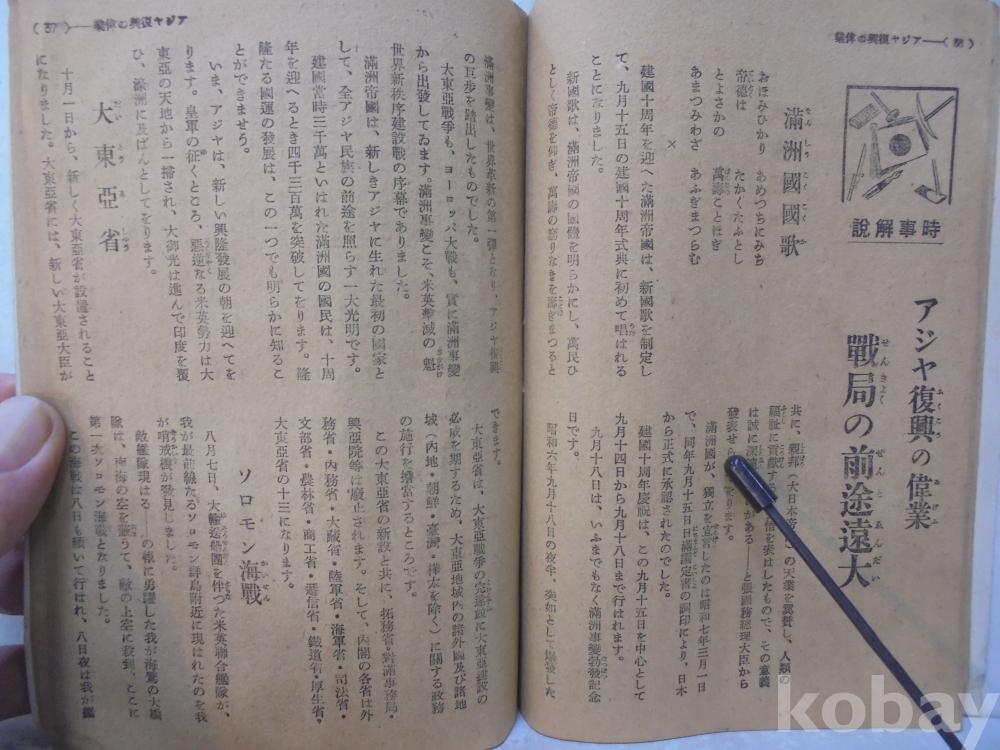 (36)──アジヤ復興の偉業
時事解說
アジヤ復興の偉業
戰局の前途遠大
滿洲國國歌
おほみひかり　あめつちにみち
帝德は　たかくたふとし
とよさかの　萬壽ことほぎ
あまつみわざ　あふぎまつらむ
建國十周年を迎へた滿洲帝國は、新國歌を制定し
て、九月十五日の建國十周年式典に初めて唱はれる
ことになりました。
×
新國歌は、滿洲帝國の國體を明らかにし、萬民ひ
としく帝德を仰ぎ、萬壽の窮りなきを壽ぎまつると
共に、親邦・大日本帝國の天業を翼贊し、人類の
福祉に貢獻する
は誠に深
發表せら
滿洲國が、獨立を宣言したのは昭和七年三月一日
で、同年九月十五日日滿議定書の調印により、日本
から正式に承認されたのでした。
建國十周年慶祝は、この九月十五日を中心として
九月十四日から九月十八日まで行はれます。
九月十八日は、いふまでもなく滿洲事變勃發記念
日です。
昭和六年九月十八日の夜半、突如として爆發した
アジヤ復興の偉業──(37)
滿洲事變は、世界革新の第一彈となり、アジヤ復興
の巨步を踏出したものでした。
大東亞戰爭も、ヨーロッパ大戰も、實に滿洲事變
から出發してゐます。滿洲事變こそ、米英擊滅の魁
世界新秩序建設戰の序幕でありました。
滿洲帝國は、新しきアジヤに生れた最初の國家と
して、全アジヤ民族の前途を照らす一大光明です。
建國當時三千萬といはれた滿洲國の國民は、十周
年を迎へるとき四千三百萬を突破してをります。隆
隆たる國運の發展は、この一つでも明らかに知るこ
とができませう。
いま、アジヤは、新しい興隆發展の朝を迎へてを
ります。皇軍の征くところ、惡逆なる米英勢力は大
東亞の天地から一掃され、大御光は進んで印度を覆
ひ、濠洲に及ばんとしてをります。
大東亞省
十月一日から、新しく大東亞省が設置されること
になりました。大東亞省には、新しい大東亞大臣が
できます。
大東亞省は、大東亞戰爭の完遂竝に大東亞建設の
必成を期するため、大東亞地域內の諸外國及び諸地
域（內地・朝鮮・臺灣・樺太を除く）に關する政務
の施行を擔當するところです。
この大東亞省の新設と共に、拓務省・對滿事務局・
興亞院等は廢止されます。そして、內閣の各省は外
務省・內務省・大藏省・陸軍省・海軍省・司法省・
文部省・農林省・商工省・遞信省・鐵道省・厚生省・
大東亞省の十三になります。
ソロモン海戰
八月七日、大輸送船團を伴つた米英聯合艦隊が、
我が最前線たるソロモン群島附近に現はれたのを我
が哨戒機が發見しました。
敵艦隊現はる――の報に勇躍した我が海鷲の大編
隊は、南海の空を蔽うて、敵の上空に殺到、ここに
第一次ソロモン海戰となりました。
この海戰は八日も續いて行はれ、八日夜は我が艦
kobay